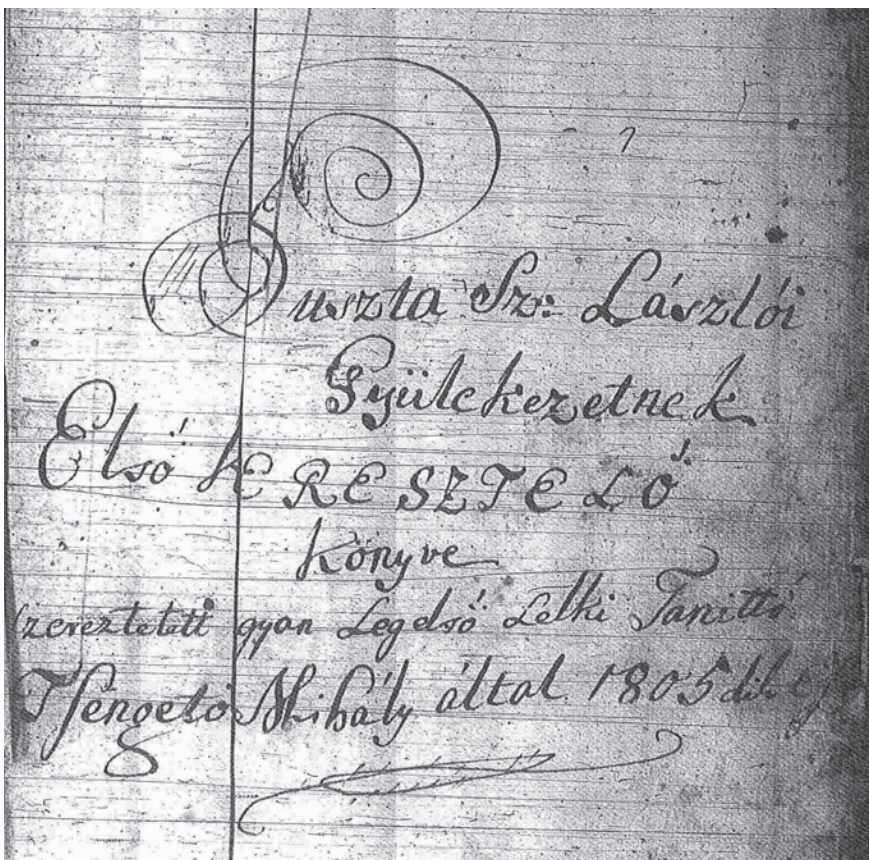 Puszta Sz: Lászlói
Gyülekezetnek
Első KERESZTELŐ
Könyve
szereztetett gyan Legelső Lelki Tanittó
Tsengető Mihály által 1805dik